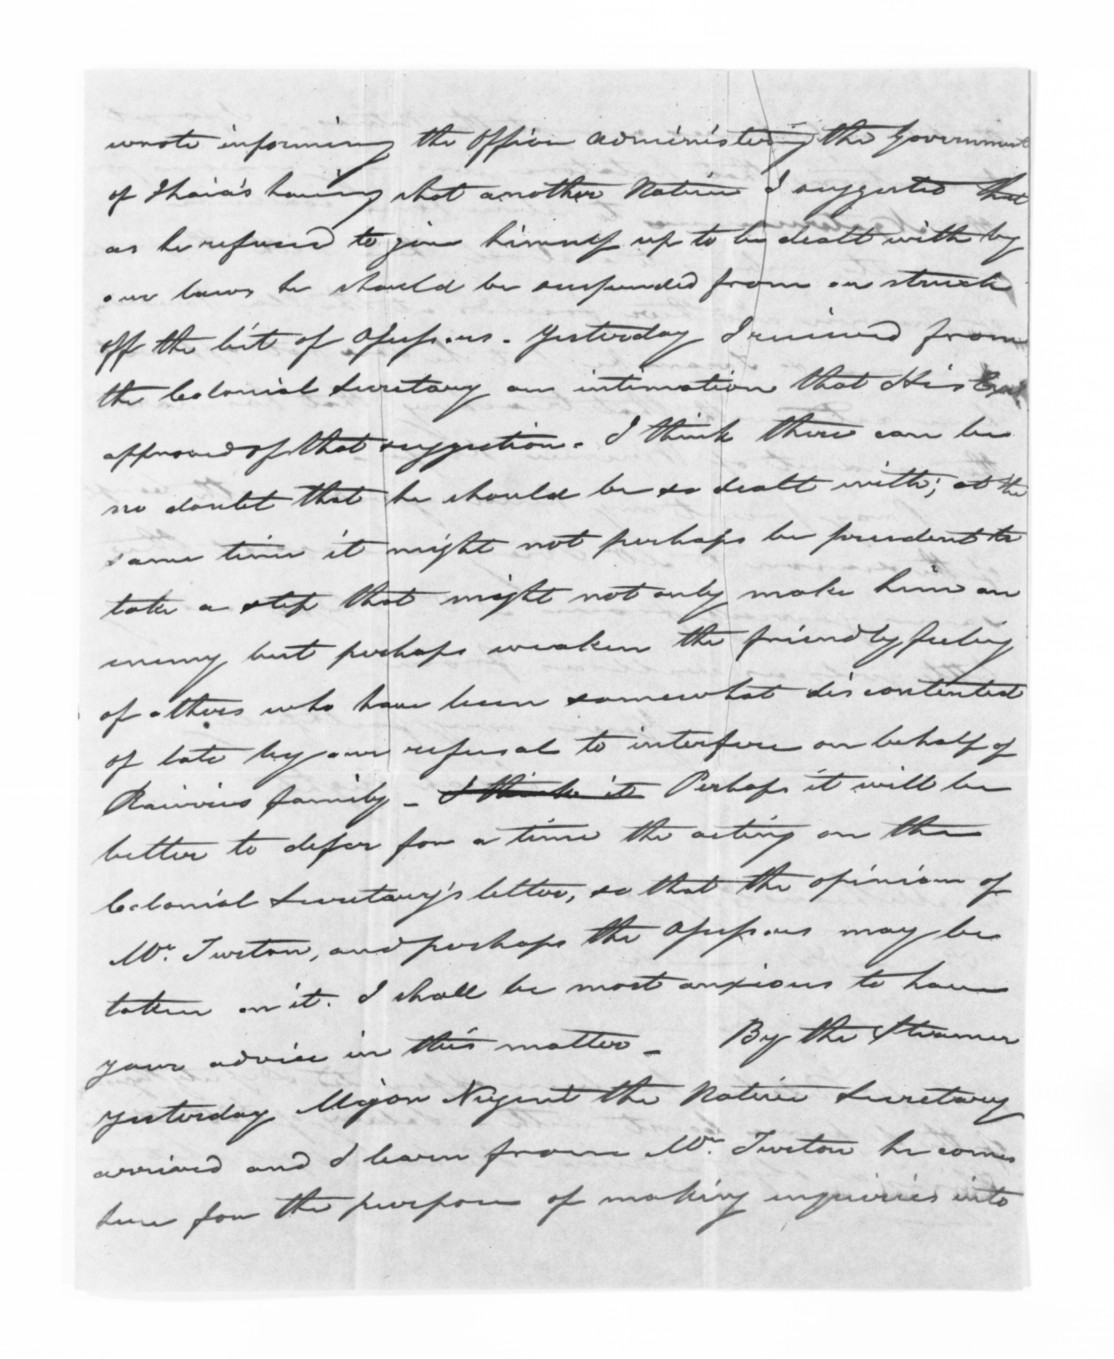 wrote informing the Officer administering the Government
of Ihaia's having shot another Native I suggested that
as he refused to give himself up to be dealt with by
our laws he should be suspended from or struck
off the list of Assessors. Yesterday I received from
the Colonial Secretary an intimation that His
approved of that suggestion. I think there can be
no doubt that he should be so dealt with; at the
same time it might not perhaps be prudent to
take a step that might not only make him an
enemy but perhaps weaken the friendly feeling
of others who have been somewhat discontented
of late by our refusal to interfere on behalf of
family – I think it Perhaps it will be
better to defer for a time the acting on the
Colonial Secretary's letter, so that the opinion of
Mr. Turton, and perhaps the Assessors may be
taken on it. I shall be most anxious to have
your advice in this matter – By the Steamer
yesterday Major Nugent the Native Secretary
arrived and I learn from Mr. Turton he comes
here for the purpose of making inquiries into